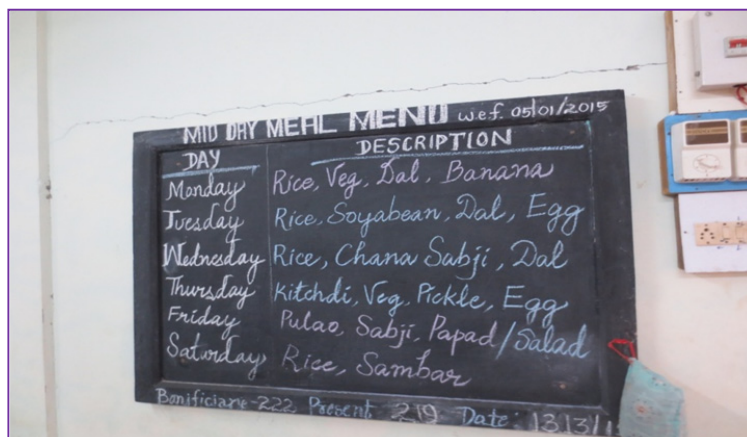 MID DAY MEAL MENU w.e.f. 05/01/2015
DAY DESCRIPTION
Monday Rice, Veg, Dal, Banana
Tuesday Rice, Soyabean, Dal, Egg
Wednesday Rice, Chana Sabji, Dal
Thursday Kitchdi, Veg, Pickle, Egg
Friday Pulao, Sabji, Papad/Salad
Saturday Rice, Sambar
Bonificiare-222 Present 219 Date: